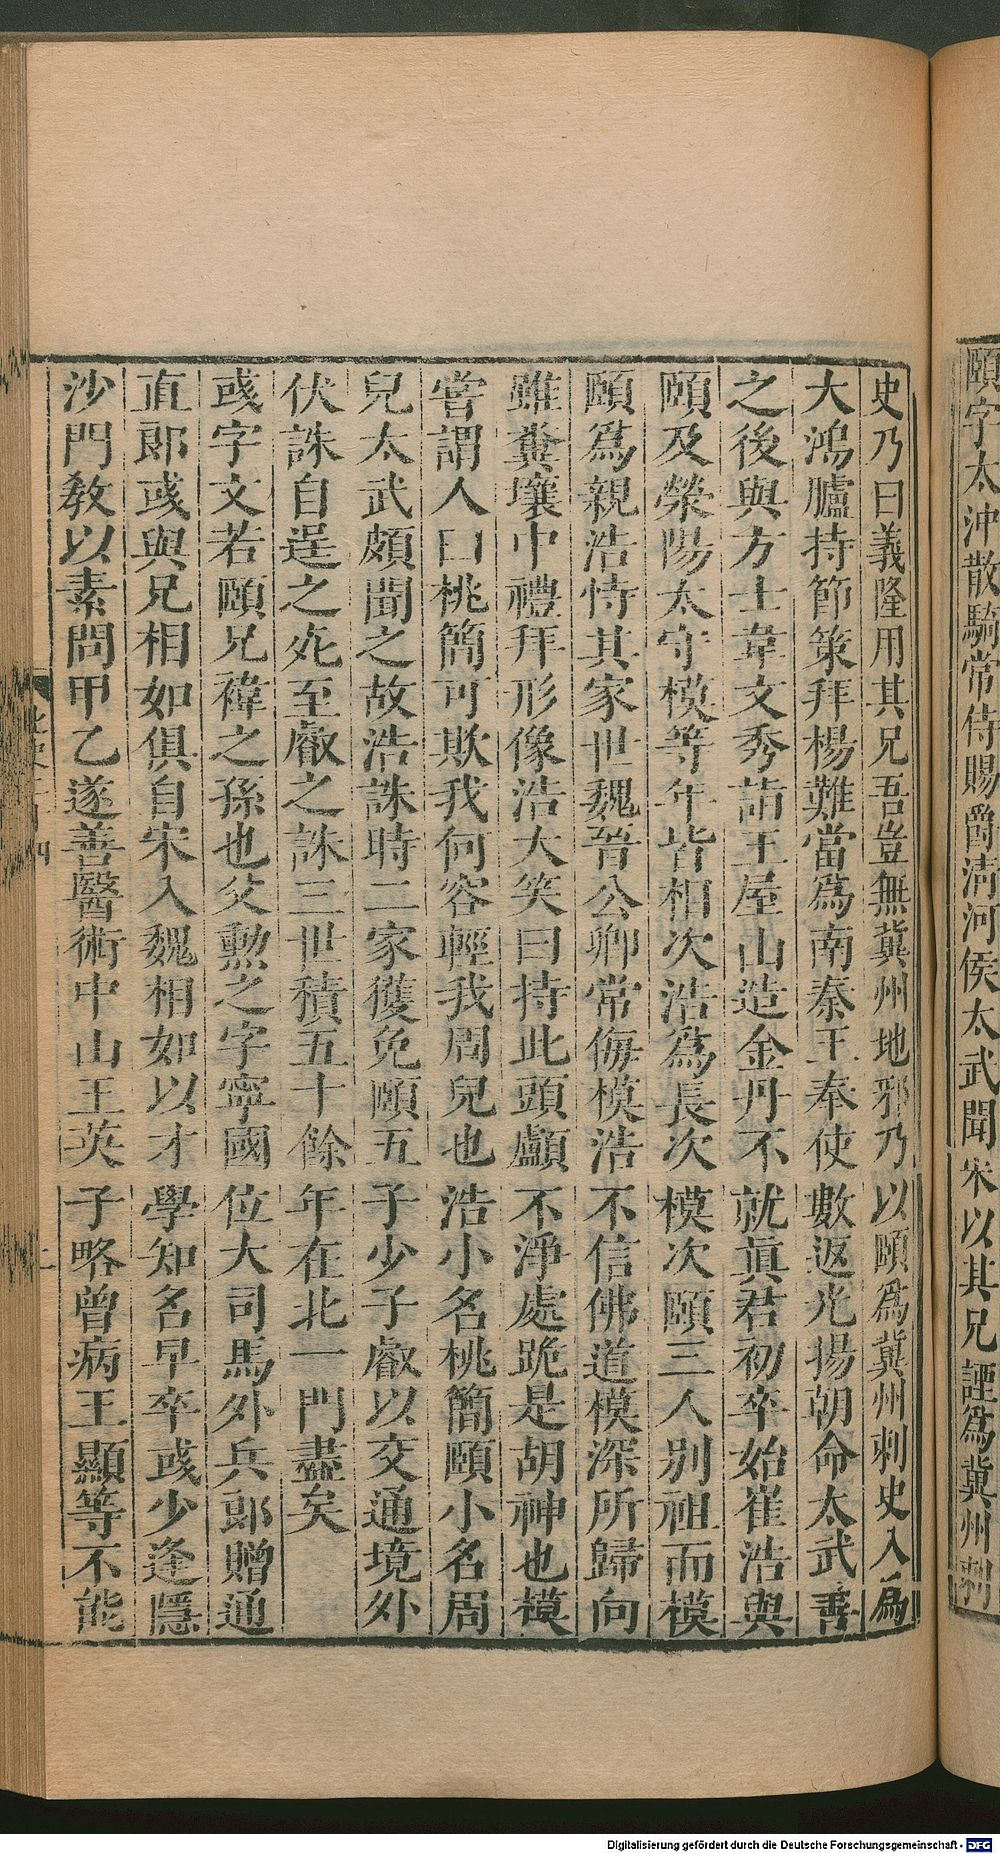 頤字太沖散騎常侍賜爵淸河侯太武聞宋以其兄諲爲冀州刺
史乃曰義隆用其兄吾豈無冀州地邪乃以頤爲冀州刺史入爲
大鴻臚持節策拜楊難當爲南秦王奉使數返光揚朝命太武善
之後與方士韋文秀詣王屋山造金丹不就眞君初卒始崔浩與
頤及滎陽太守模等年皆相次浩爲長次模次頤三人别祖而模
頤爲親浩恃其家世魏晉公卿常侮模浩不信佛道模深所歸向
雖糞壤中禮拜形像浩大笑曰持此頭顱不淨處跪是胡神也模
嘗謂人曰桃簡可欺我何容輕我周兒也浩小名桃簡頤小名周
兒太武頗聞之故浩誅時二家獲免頤五子少子叡以交通境外
伏誅自逞之死至叡之誅三世積五十餘年在北一門盡矣
彧字文若頤兄禕之孫也父勲之字寧國位大司馬外兵郎贈通
直郎彧與兄相如俱自宋入魏相如以才學知名早卒彧少逢隱
沙門敎以素問甲乙遂善醫術中山王英子略曾病王顯等不能
Digitalisierung gefördert durch die Deutsche Forschungsgemeinschaft - DFG